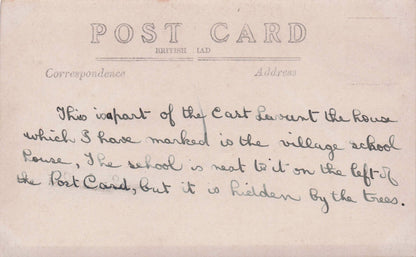 POST CARD
BRITISH MAD
Correspondence Address
This is part of the East Lavant the house
which I have marked is the village school
house, The school is next to it on the left of
the Post Card, but it is hidden by the trees.